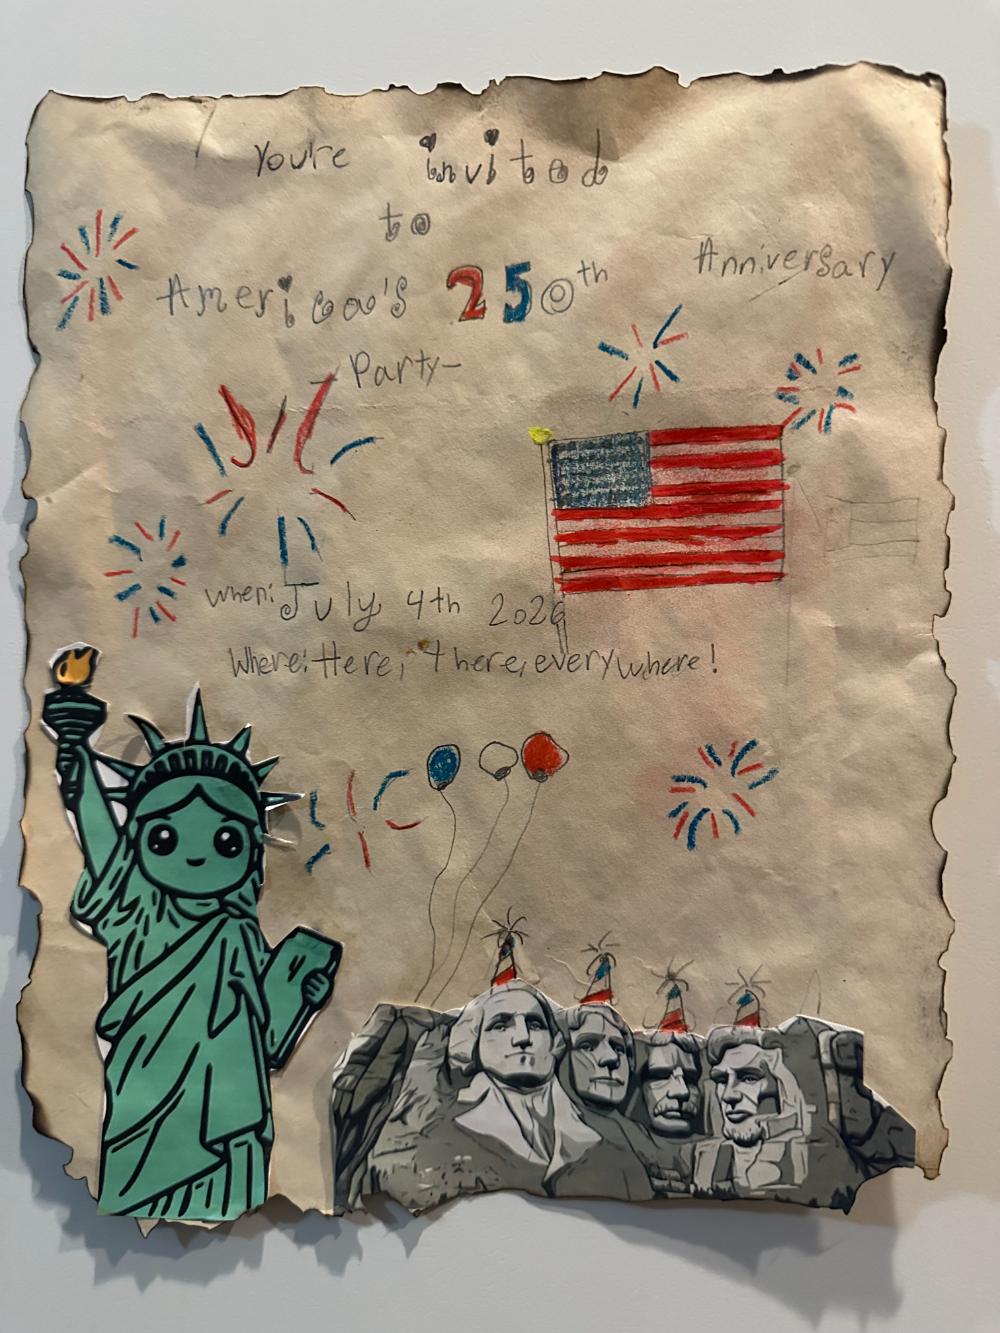 You're invited
to
America's 250th Anniversary
- Party -
When: July 4th 2026
Where: Here, there, everywhere!